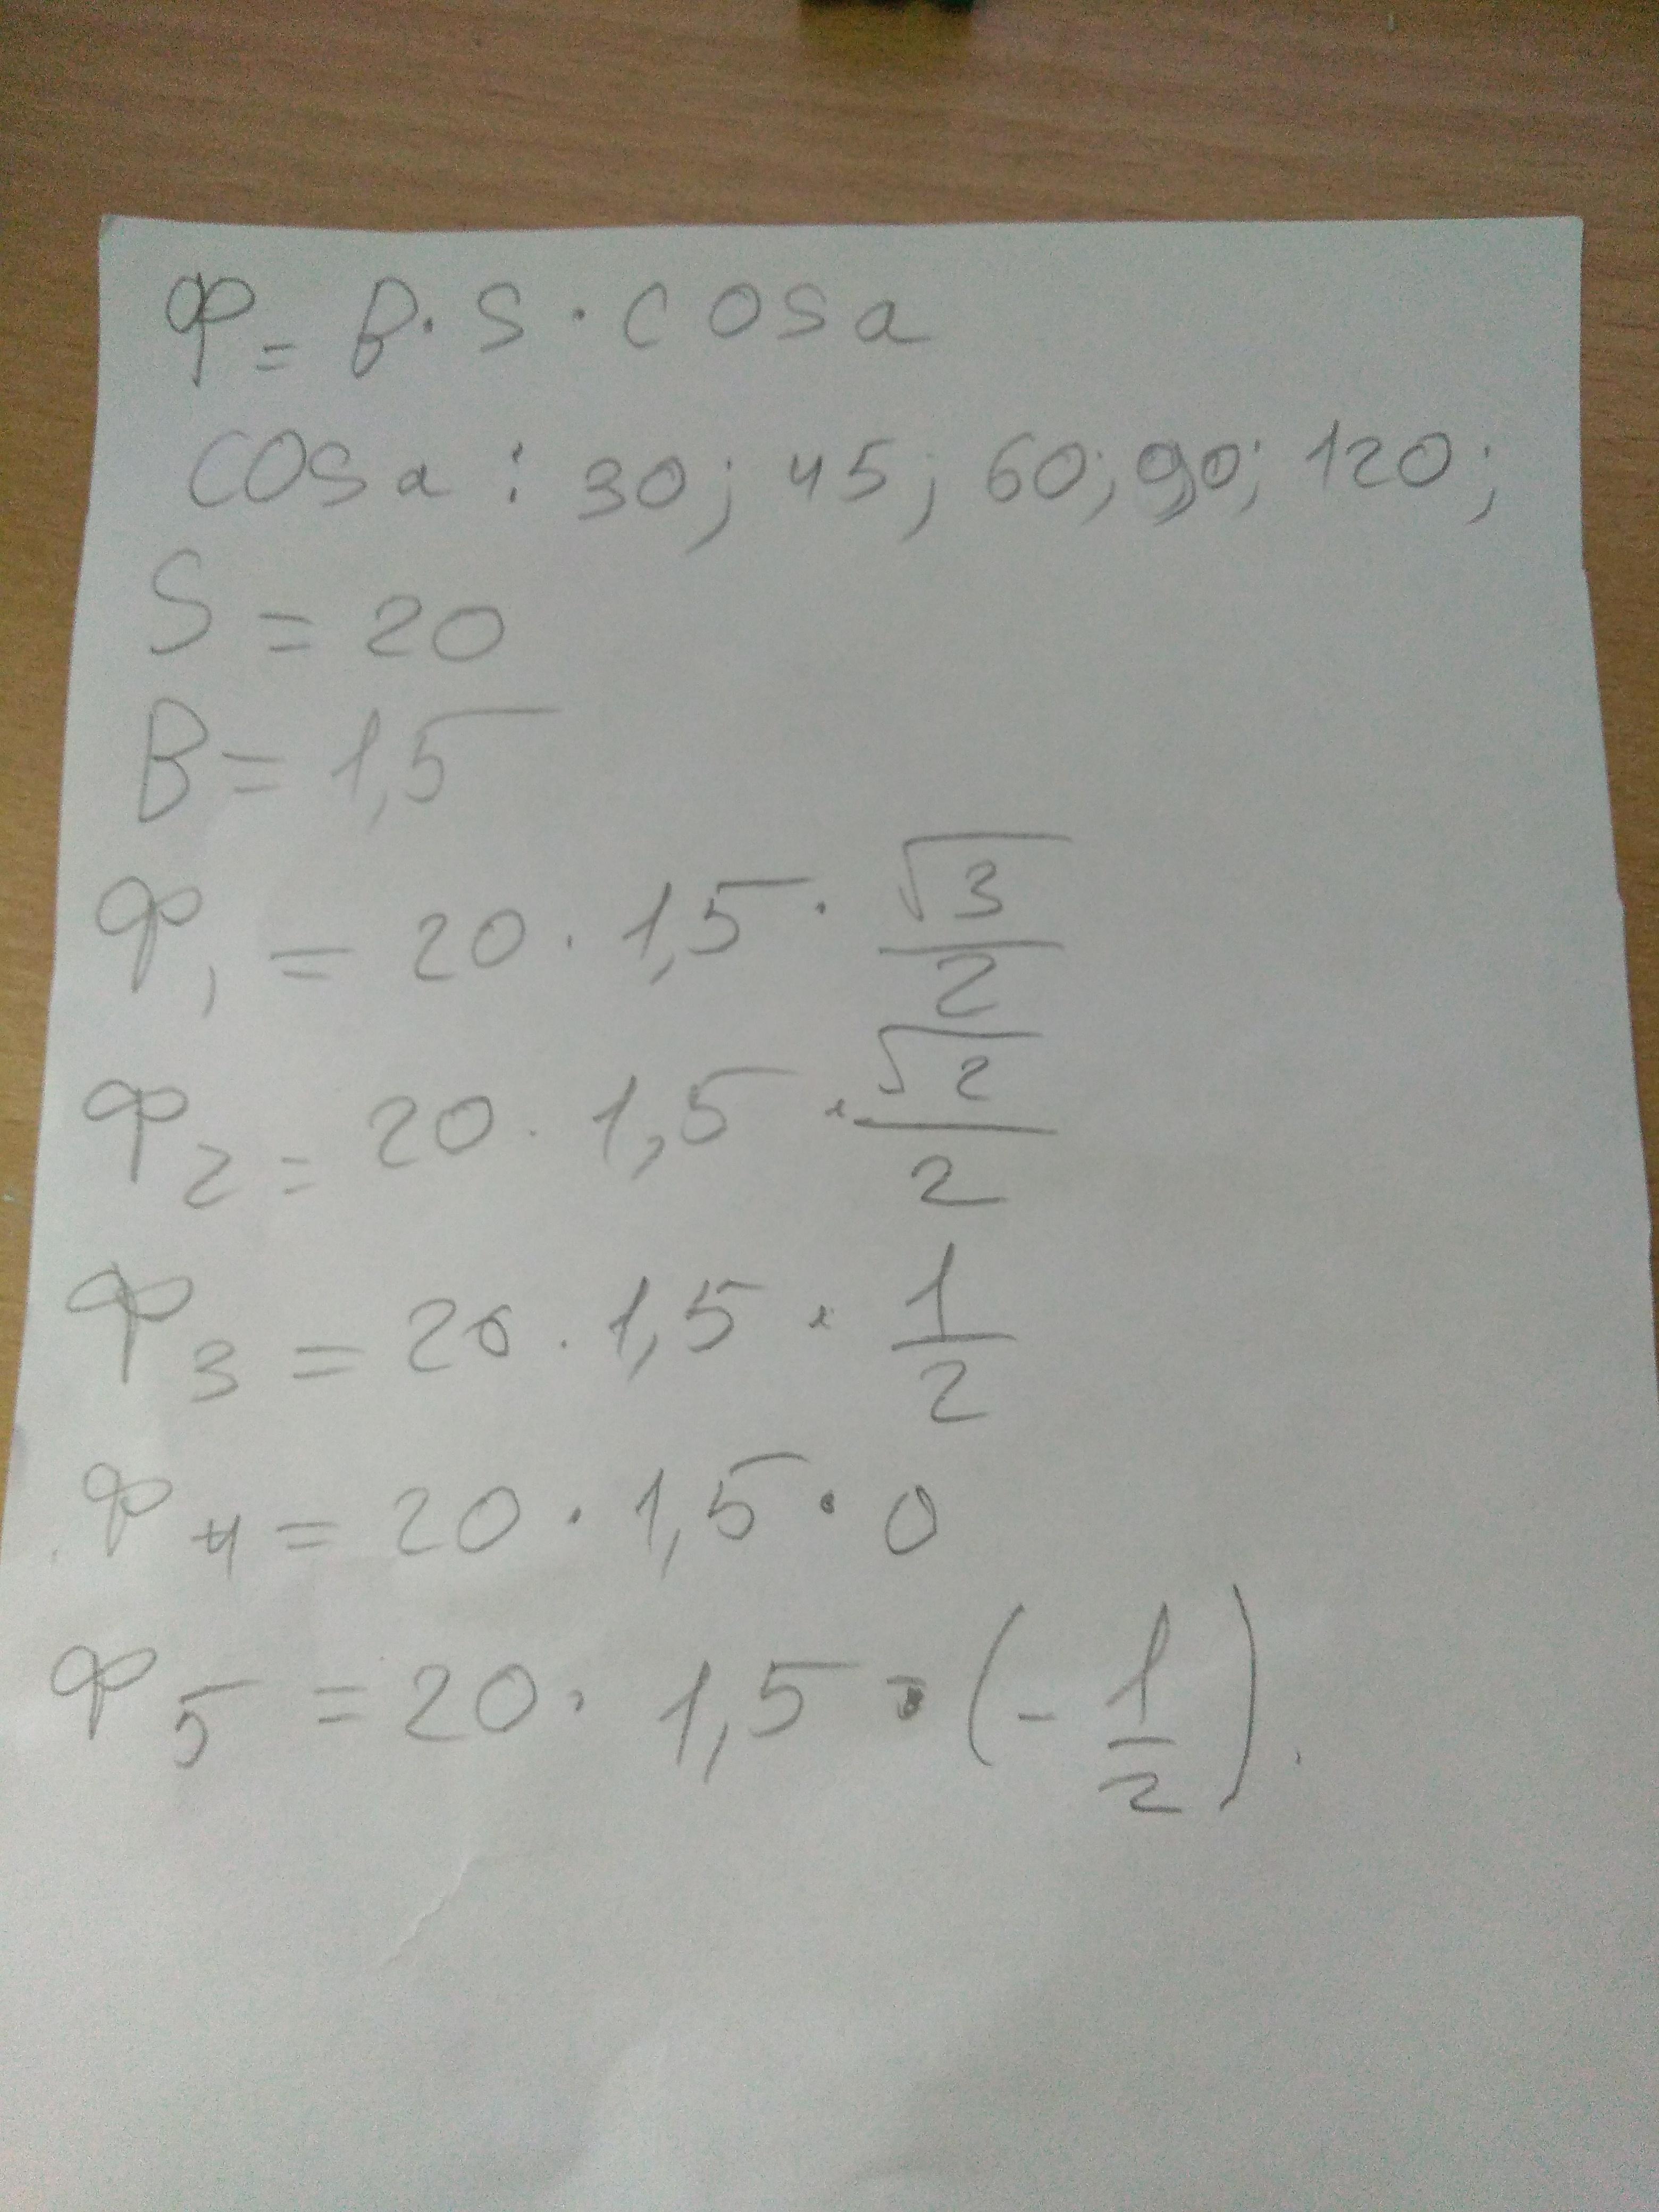 Ф = B · S · cos a
cos a : 30; 45; 60; 90; 120;
S = 20
B = 1,5
Ф₁ = 20 · 1,5 · √3/2
Ф₂ = 20 · 1,5 · √2/2
Ф₃ = 20 · 1,5 · 1/2
Ф₄ = 20 · 1,5 · 0
Ф₅ = 20 · 1,5 · (-1/2).